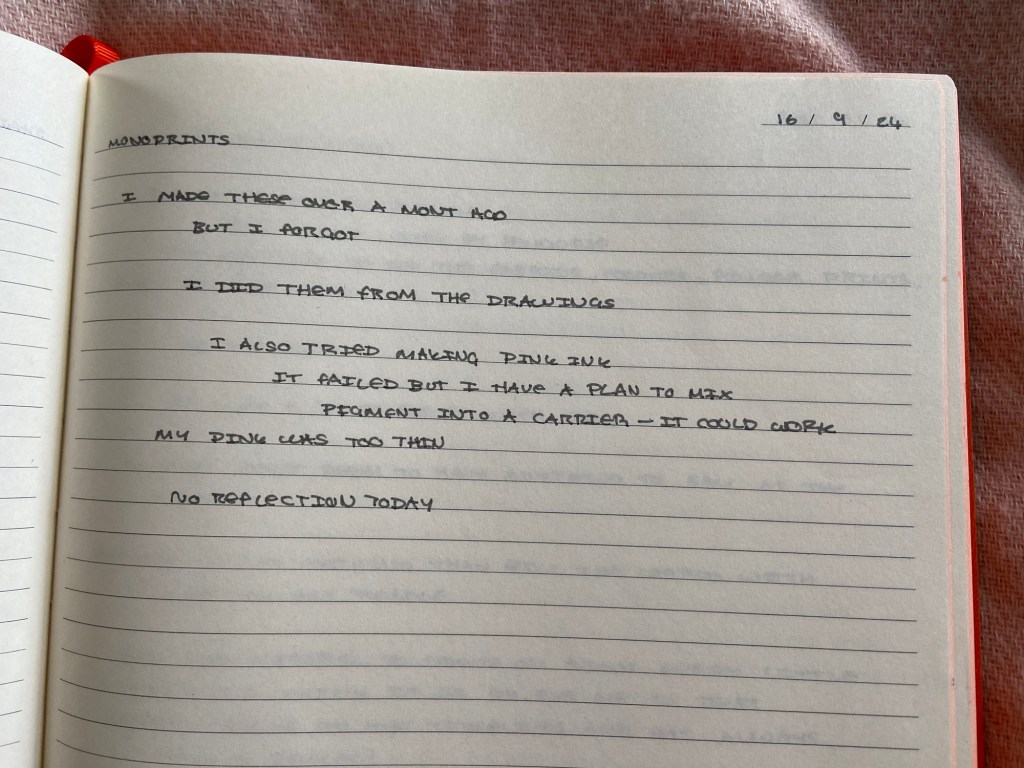 16 / 9 / 24
MONOPRINTS
I MADE THESE OVER A MONT AGO
BUT I FORGOT
I DID THEM FROM THE DRAWINGS
I ALSO TRIED MAKING PINK INK
IT FAILED BUT I HAVE A PLAN TO MIX
PIGMENT INTO A CARRIER — IT COULD WORK
MY PINK WAS TOO THIN
NO REFLECTION TODAY